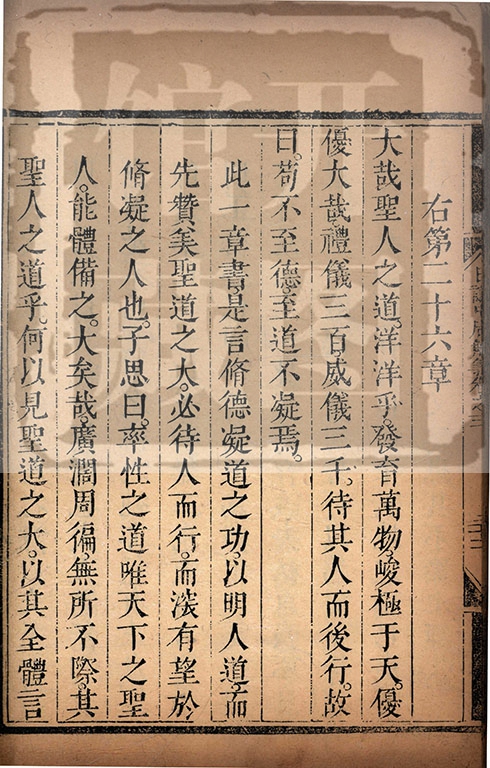 右第二十六章
大哉聖人之道。洋洋乎。發育萬物。峻極于天。優
優大哉。禮儀三百。威儀三千。待其人而後行。故
曰。苟不至德。至道不凝焉。
此一章書。是言脩德凝道之功。以明人道。而
先贊美聖道之大。必待人而行。而深有望於
脩凝之人也。子思曰。率性之道。唯天下之聖
人。能體備之。大矣哉。廣濶周徧。無所不際。其
聖人之道乎。何以見聖道之大。以其全體言